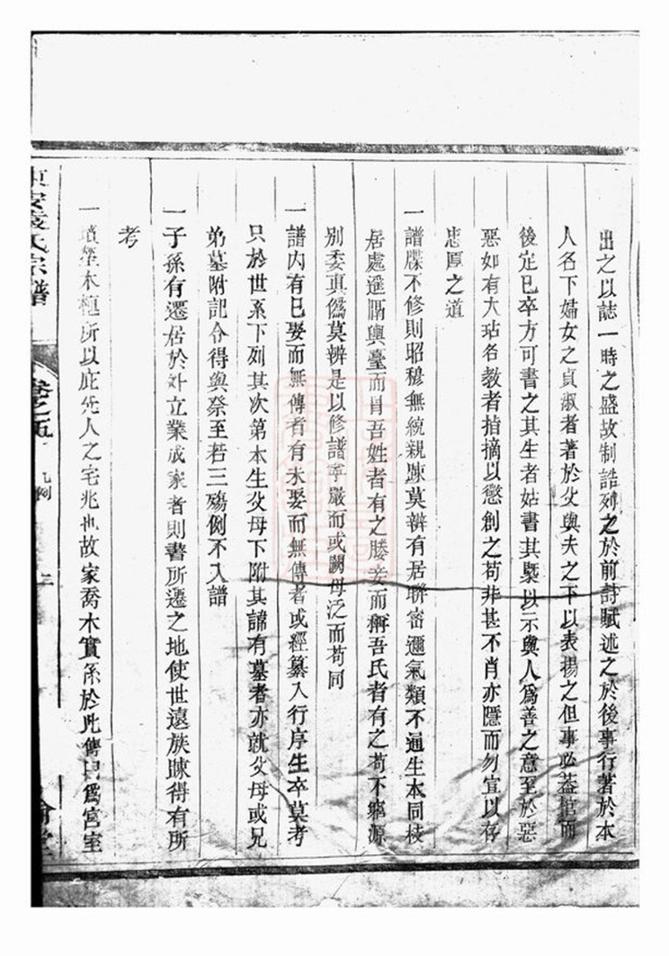 出之以誌一時之盛故制誥列之於前詩賦述之於後事行著於本
人名下婦女之貞淑者著於父與夫之下以表揚之但事必葢棺而
後定已卒方可書之其生者姑書其槩以示與人爲善之意至於惡
惡如有大玷名教者指摘以懲創之苟非甚不肖亦隱而勿宣以存
忠厚之道
一譜牒不修則昭穆無統親踈莫辨有居聯密邇氣類不通生本同枝
居處遥隔輿臺而冒吾姓者有之媵妾而稱吾氏者有之苟不窮源
別委真僞莫辨是以修譜寧嚴而或闕毋泛而苟同
一譜內有已娶而無傳者有未娶而無傳者或經纂入行序生卒莫考
只於世系下列其次第本生父母下附其諱有墓者亦就父母或兄
弟墓附記令得與祭至若三殤例不入譜
一子孫有遷居於外立業成家者則書所遷之地使世遠族踈得有所
考
一墳塋木植所以庇先人之宅兆也故家喬木實系於此傳曰爲宮室
東安袁氏宗譜
卷之五
凡例
三
堂